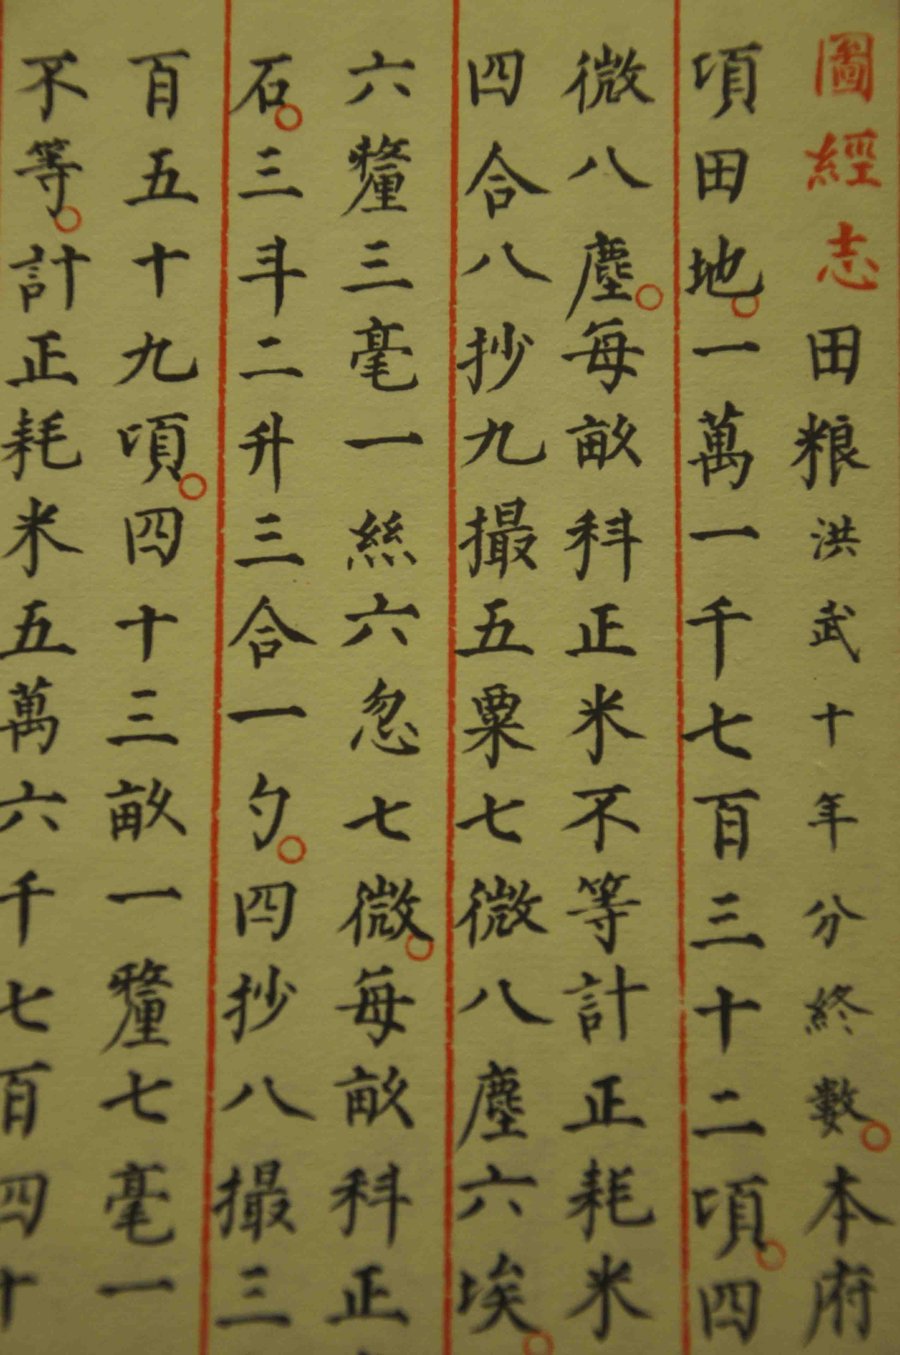 圖經志田粮洪武十年分終數。本府
頃田地。一萬一千七百三十二頃。四
微八塵。每畝科正米不等計正耗米
四合八抄九撮五粟七微八塵六埃。
六釐三毫一絲六忽七微。每畝科正
石。三斗二升三合一勺。四抄八撮三
百五十九頃。四十三畝一釐七毫一
不等。計正耗米五萬六千七百四十